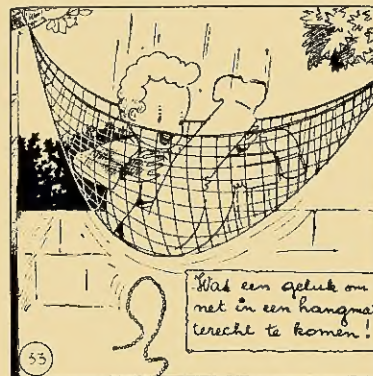 Wat een geluk om
net in een hangmat
terecht te komen!
33